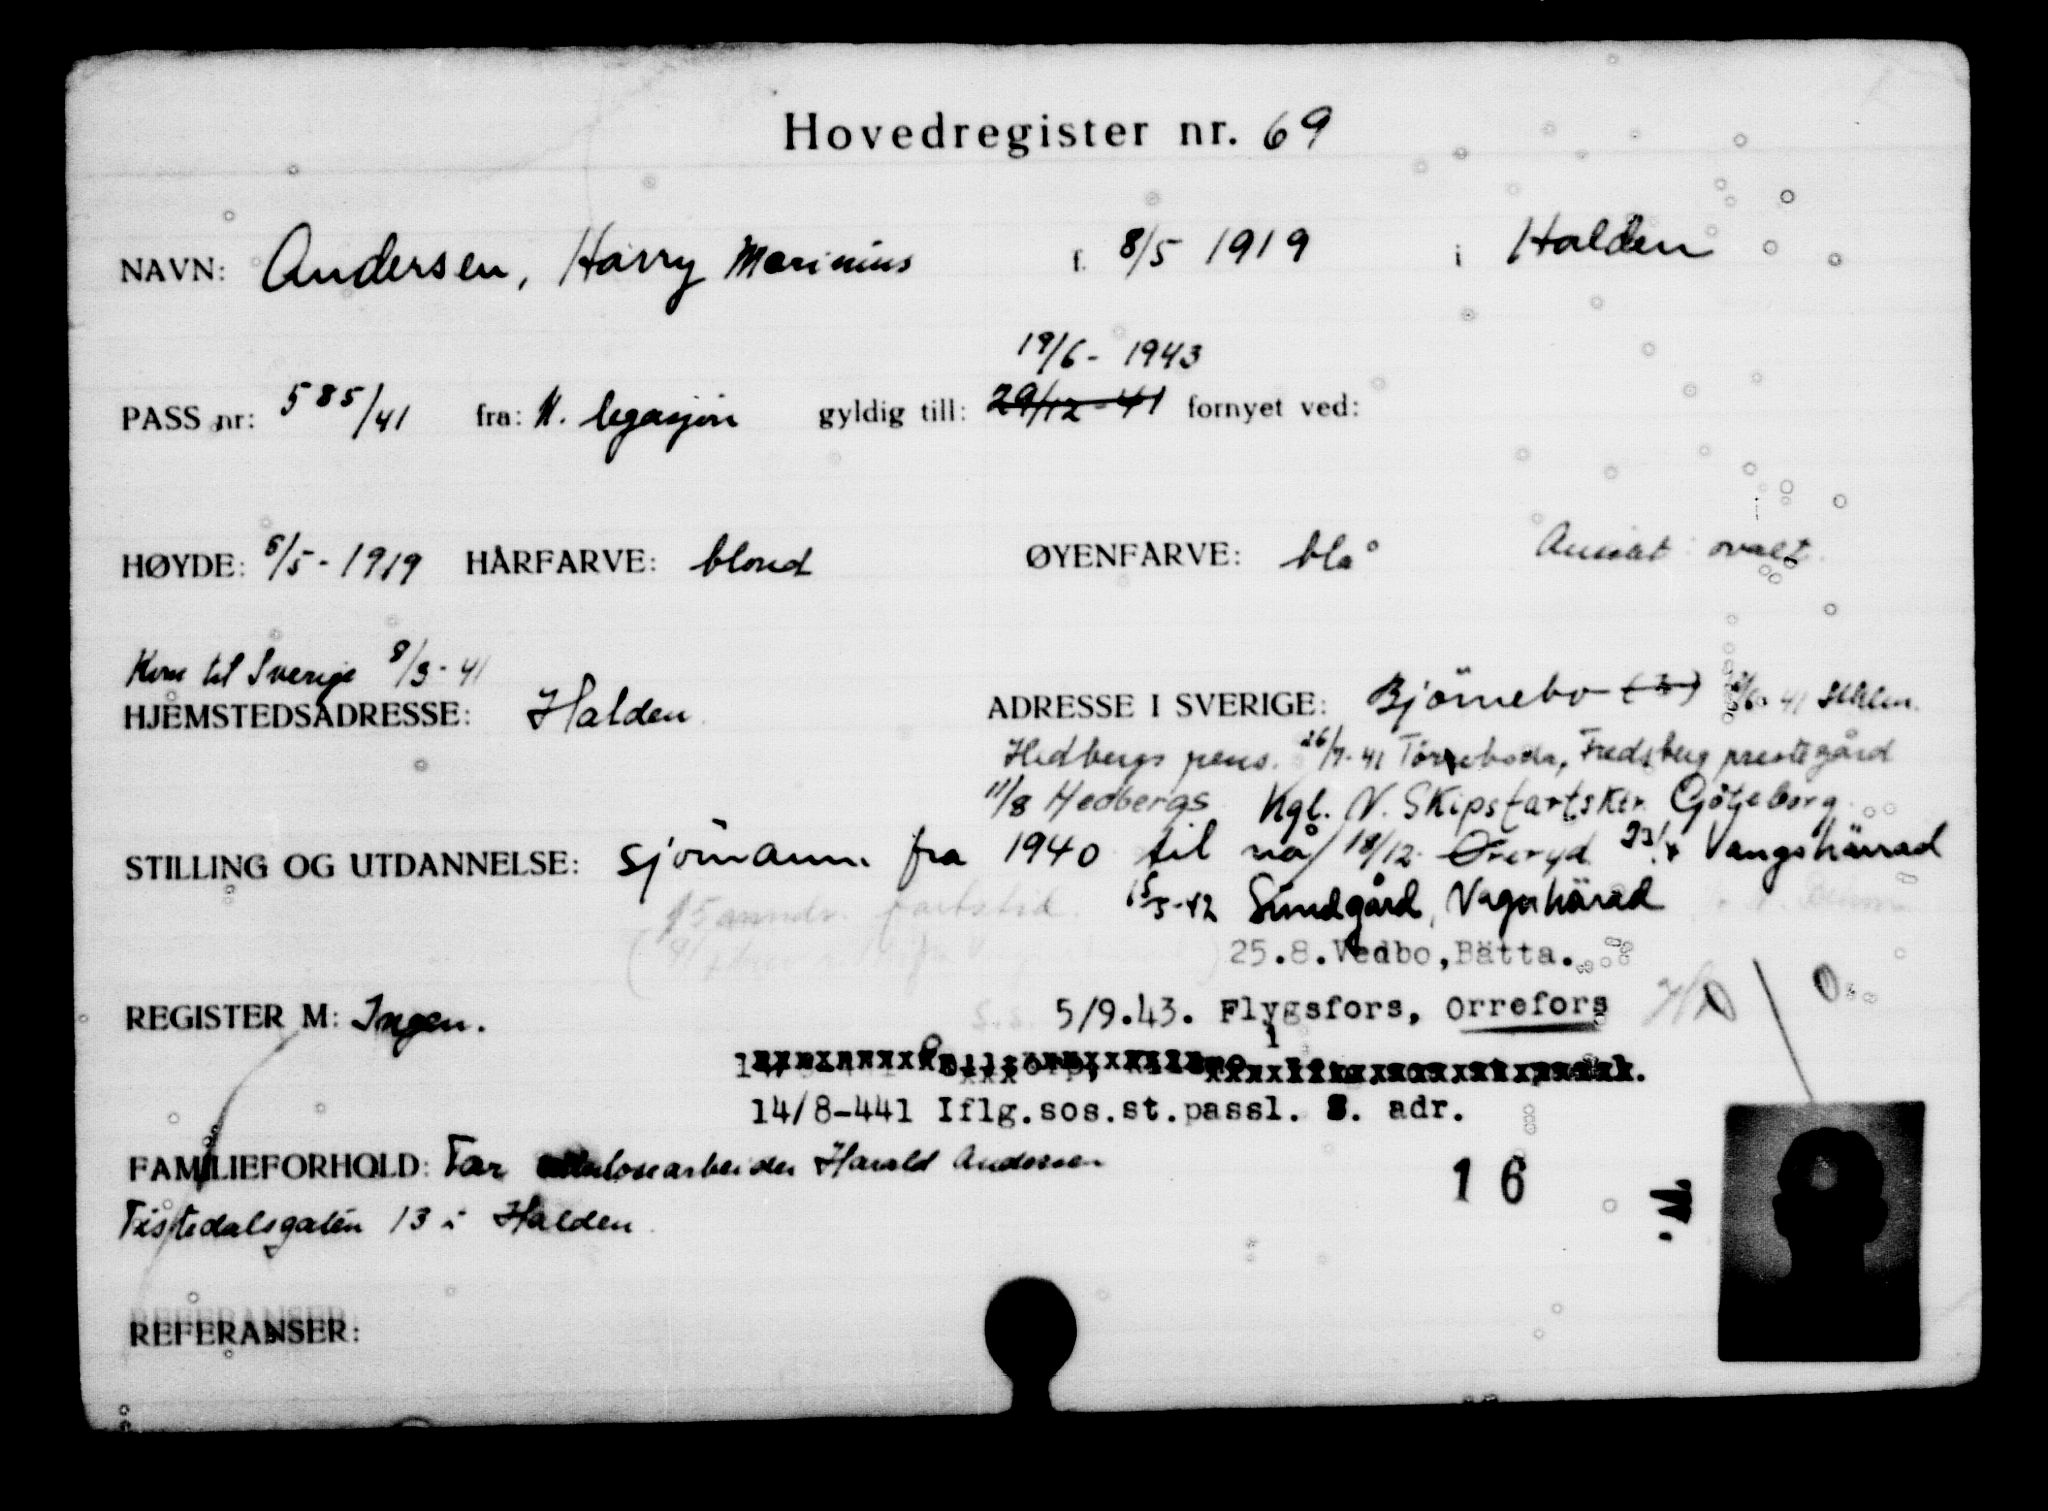 Hovedregister nr. 69
NAVN: Andersen, Harry Marinius f. 8/5 1919 i Halden
19/6 - 1943
PASS nr: 585/41 fra: N. legasjon gyldig till: 29/12-41 fornyet ved:
HØYDE: 8/5 - 1919 HÅRFARVE: blond ØYENFARVE: blå Ansikt ovalt
Kom til Sverige 8/3 - 41
HJEMSTEDSADRESSE: Halden ADRESSE I SVERIGE: Björnebo 41 Sthlm.
Hedbergs pens. 26/7-41 Töreboda, Fredsberg prestegård
11/8 Hedbergs Kgl. N. Skipsfartsktr. Götjeborg.
STILLING OG UTDANNELSE: sjömann fra 1940 til nå 18/12 Öreryd 23/ Vangshärrad
15 fartstid 15/5-42 Sundgård, Vagnhärad
25.8. Vedbo, Bätta.
REGISTER M: Ingen. 5/9.43. Flygsfors, Orrefors
14/8-441 Iflg.sos.st.passl. S. adr.
FAMILIEFORHOLD: Far Harald Andersen
16
Tistedalsgaten 13 i Halden
REFERANSER: